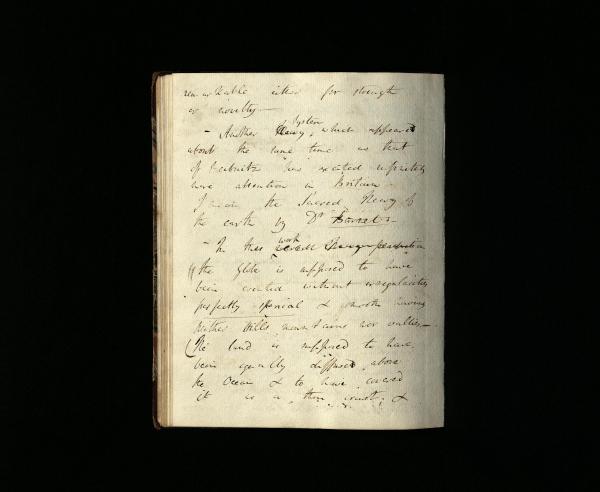 remarkable either for strength
or novelty —
- Another Theory system, which appeared
about the same time as that
of Leibnitz has excited infinitely
more attention in Britain -
I mean the Sacred Theory of
the earth by Dr Burnet -
- In this work
the globe is supposed to have
been created without irregularities
perfectly spherical & smooth having
neither hills mountains nor vallies —
(The land is supposed to have
been equally diffused above
the Ocean & to have covered
it as a thin crust; &